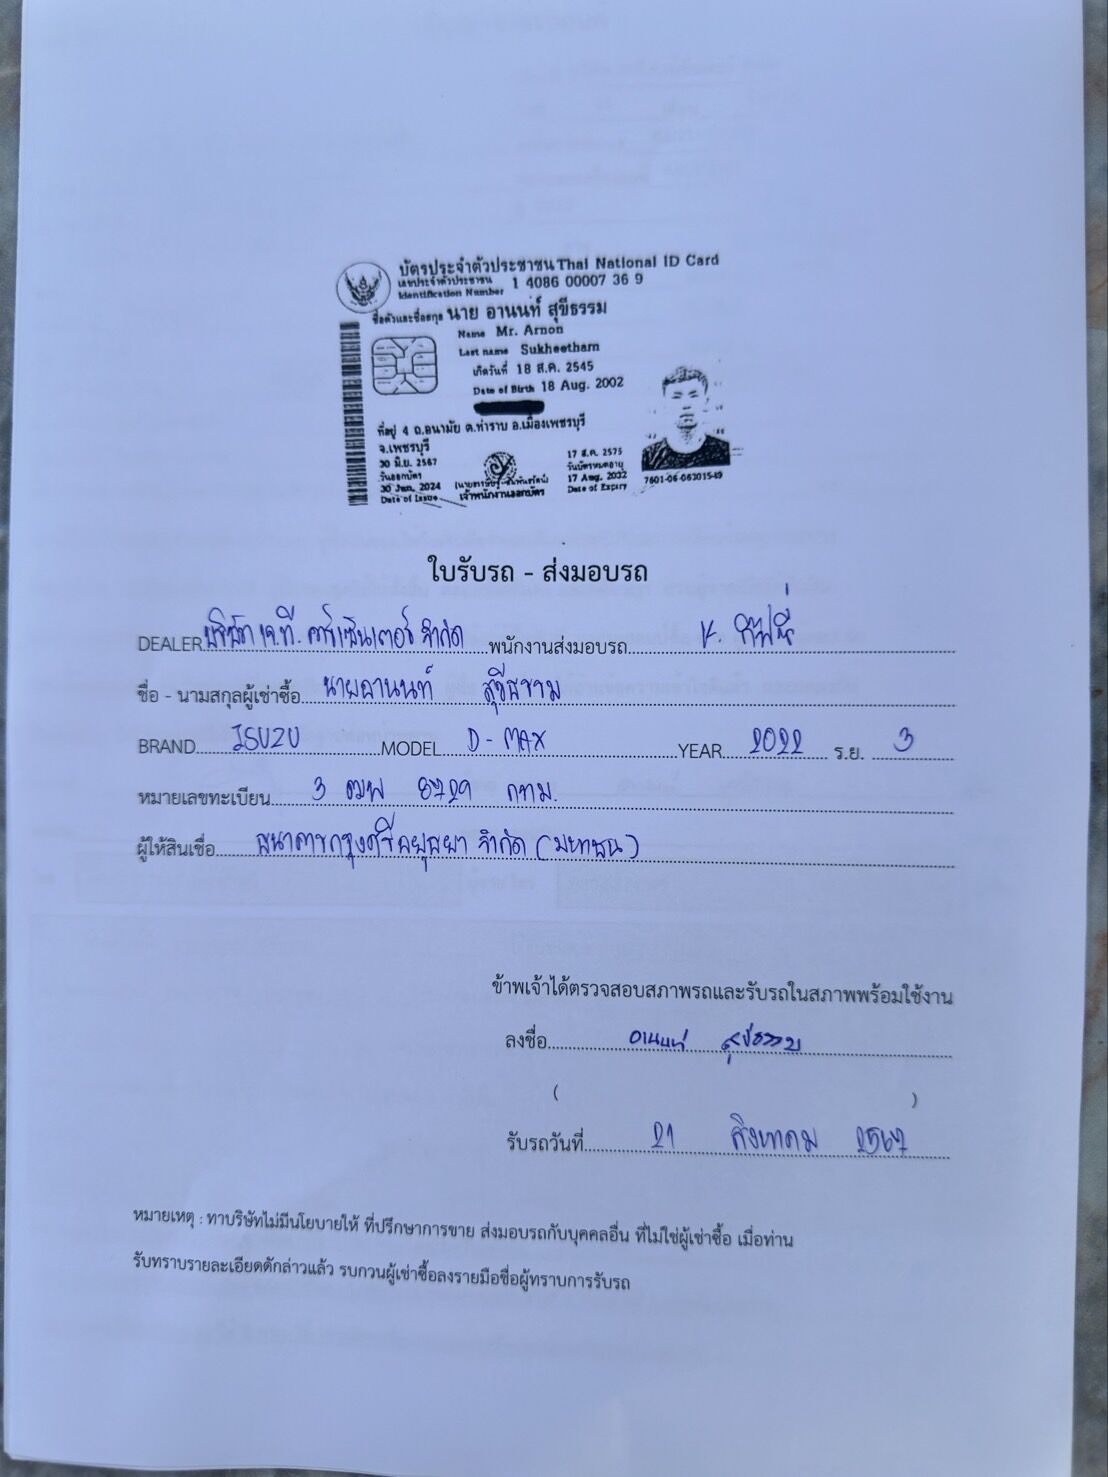 บัตรประจำตัวประชาชน Thai National ID Card
เลขประจำตัวประชาชน
Identification Number 1 4086 00007 36 9
ชื่อตัวและชื่อสกุล นาย อานนท์ สุขีธรรม
Name Mr. Arnon
Last name Sukheetham
เกิดวันที่ 18 ส.ค. 2545
Date of Birth 18 Aug. 2002
ที่อยู่ 4 ถ.อนามัย ต.ท่าราบ อ.เมืองเพชรบุรี
จ.เพชรบุรี
30 มิ.ย. 2567
วันออกบัตร
30 Jun. 2024
Date of Issue
เจ้าพนักงานออกบัตร
17 ส.ค. 2575
วันบัตรหมดอายุ
17 Aug. 2032
Date of Expiry
7601-06-06301549
ใบรับรถ - ส่งมอบรถ
DEALER บริษัท เจ.ที. คาร์เซ็นเตอร์ จำกัด พนักงานส่งมอบรถ
ชื่อ - นามสกุลผู้เช่าซื้อ นายอานนท์ สุขีธรรม
BRAND ISUZU MODEL D-MAX YEAR 2022 ร.ย. 3
หมายเลขทะเบียน 3 ฒฬ 8729 กทม.
ผู้ให้สินเชื่อ ธนาคารกรุงศรีอยุธยา จำกัด (มหาชน)
ข้าพเจ้าได้ตรวจสอบสภาพรถและรับรถในสภาพพร้อมใช้งาน
ลงชื่อ อานนท์ สุขีธรรม
( )
รับรถวันที่ 21 สิงหาคม 2567
หมายเหตุ : ทาบริษัทไม่มีนโยบายให้ ที่ปรึกษาการขาย ส่งมอบรถกับบุคคลอื่น ที่ไม่ใช่ผู้เช่าซื้อ เมื่อท่าน
รับทราบรายละเอียดดักล่าวแล้ว รบกวนผู้เช่าซื้อลงรายมือชื่อผู้ทราบการรับรถ